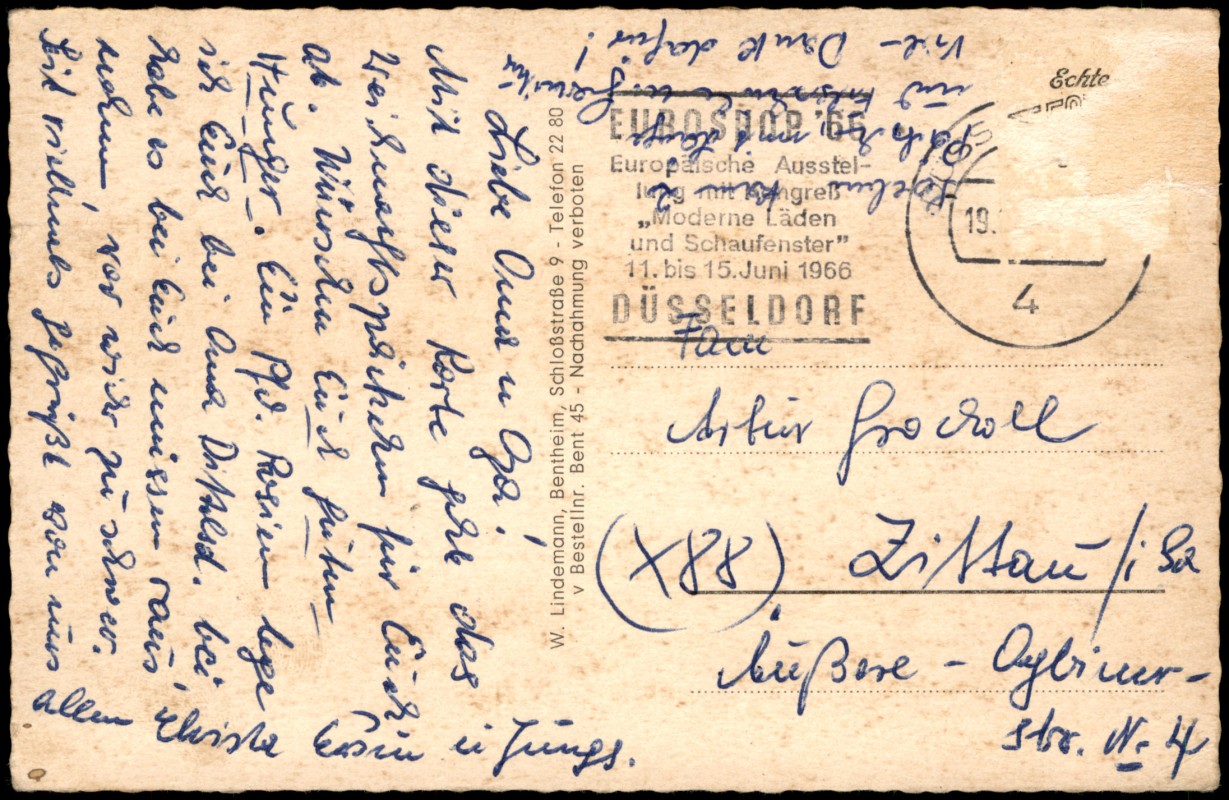 Liebe Oma u Opa!
Mit dieser Karte geht das
Weihnachtspäckchen für Euch
ab. Wünschen Euch guten
Hunger. Ein Pfd. Rosinen lege
ich Euch bei Oma bei,
habe es bei Euch müssen raus
nehmen war wieder zu schwer.
Seid vielmals gegrüßt von uns
allen Christa Erwin u Jungs.
und
Viel- Dank dafür!
W. Lindemann, Bentheim, Schloßstraße 9 - Telefon 22 80
v Bestellnr. Bent 45 - Nachahmung verboten
EUROSHOP '66
Europäische Ausstel-
lung mit Kongreß
„Moderne Läden
und Schaufenster"
11. bis 15. Juni 1966
DÜSSELDORF
Echte
19.
4
Fam
Artur Grocholl
(X88) Zittau / i Sa
Äußere - Oybiner-
str. No 4